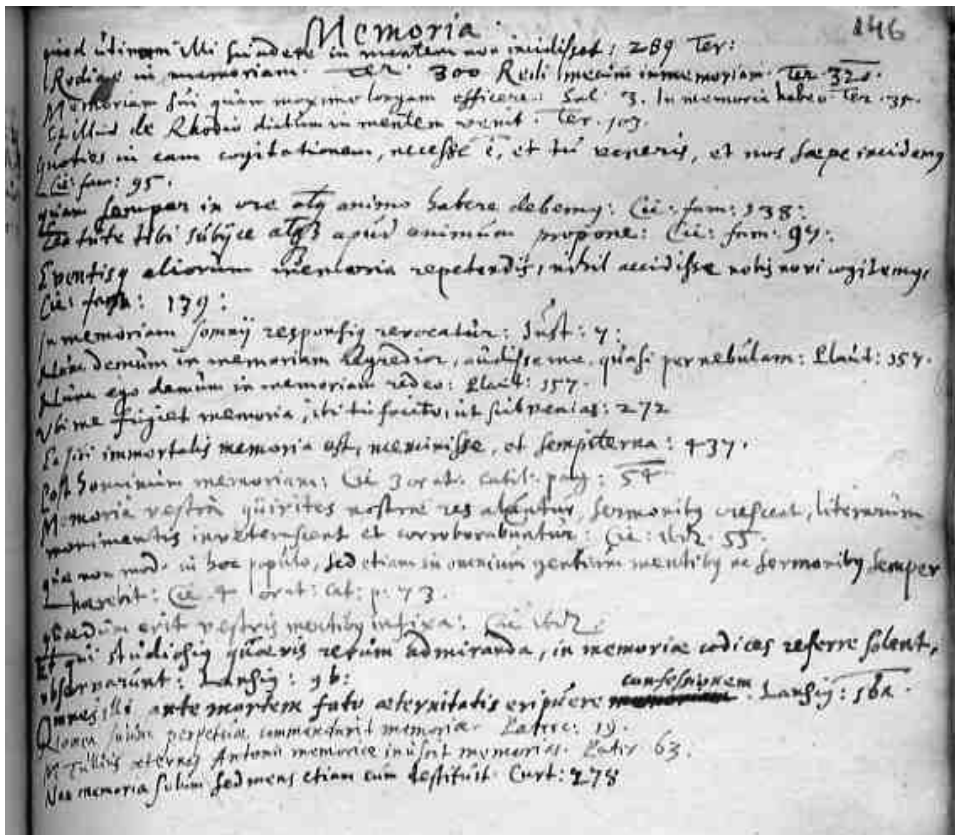 Memoria
146
quod utinam illi in mentem non incidisset: 289 Ter:
Redige in memoriam. Ter 300 Redi mecum in memoriam. Ter. 320.
Memoriam sui quam maxime longam efficere: Sal 3. In memoria habeo Ter. 35.
Et illud de Rhodio dictum in mentem venit. Ter. 103.
quoties in eam cogitationem, necesse ē, et tu veneris, et nos saepe incidemy
Cic: fam: 95.
quam semper in ore atq animo habere debemy: Cic: fam: 138:
tute tibi subijce atqꝫ apud animum propone: Cic: fam: 97:
Eventisq aliorum memoria repetendis, nihil accidisse nobis novi cogitemy,
Cic: fam: 139:
In memoriam somnij revocatur: Just: 7:
Nunc demum in memoriam regredior, audisse me quasi per nebulam: Plaut: 157.
Nunc ego demum in memoriam redeo: Plaut: 157.
Ubi me fugiet memoria, ibi tu facito, ut subvenias: 272
immortalis memoria est, meminisse, et sempiterna: 437.
Post hominum memoriam: Cic 3 orat. catil. pag: 54
Memoria vestra quirites nostrae res alentur, sermoniby crescent, literarum
monimentis inveterascent et corroborabuntur: Cic: ibid. 55.
quae non modo in hoc populo, sed etiam in omnium gentium mentiby ac sermoniby semper
haerebit: Cic 4 orat: Cat: p: 73.
erit vestris mentiby infixa: Cic ibid.
Et qui studiosiq quaevis rerum admiranda, in memoriae codices referre solent,
observarunt: Lansiq: 96:
Omnes illi ante mortem fato aeternitatis eripuere confessionem. Lansiq: 162.
perpetuae commendarit memoriae Laterc: 19.
M Tullius aeternas Antonii memoriae inussit memorias. Later 63.
Nec memoria solum sed mens etiam eum destituit. Curt: 278